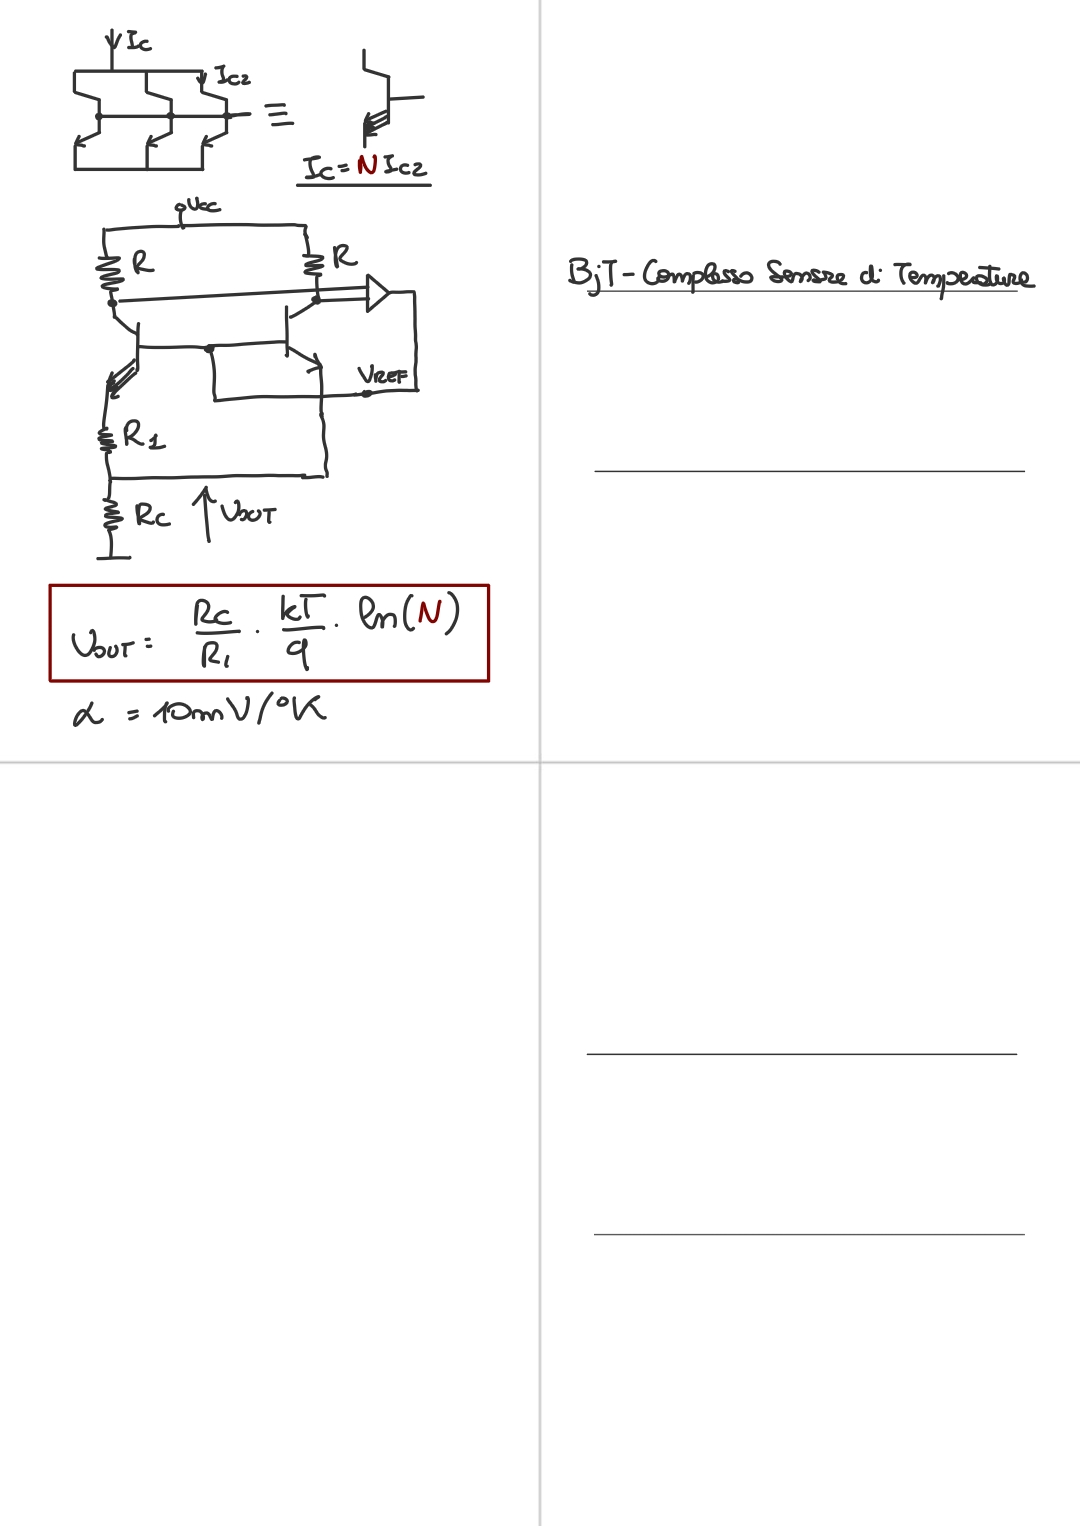 Ic
Ic2
≡
Ic = N Ic2
Vcc
R
R
VREF
R1
Rc
VOUT
VOUT = Rc/R1 · kT/q · ln(N)
α = 10mV/°K
BjT - Complesso Sensore di Temperatura